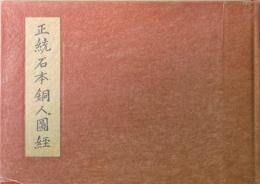 正統石本銅人圖經